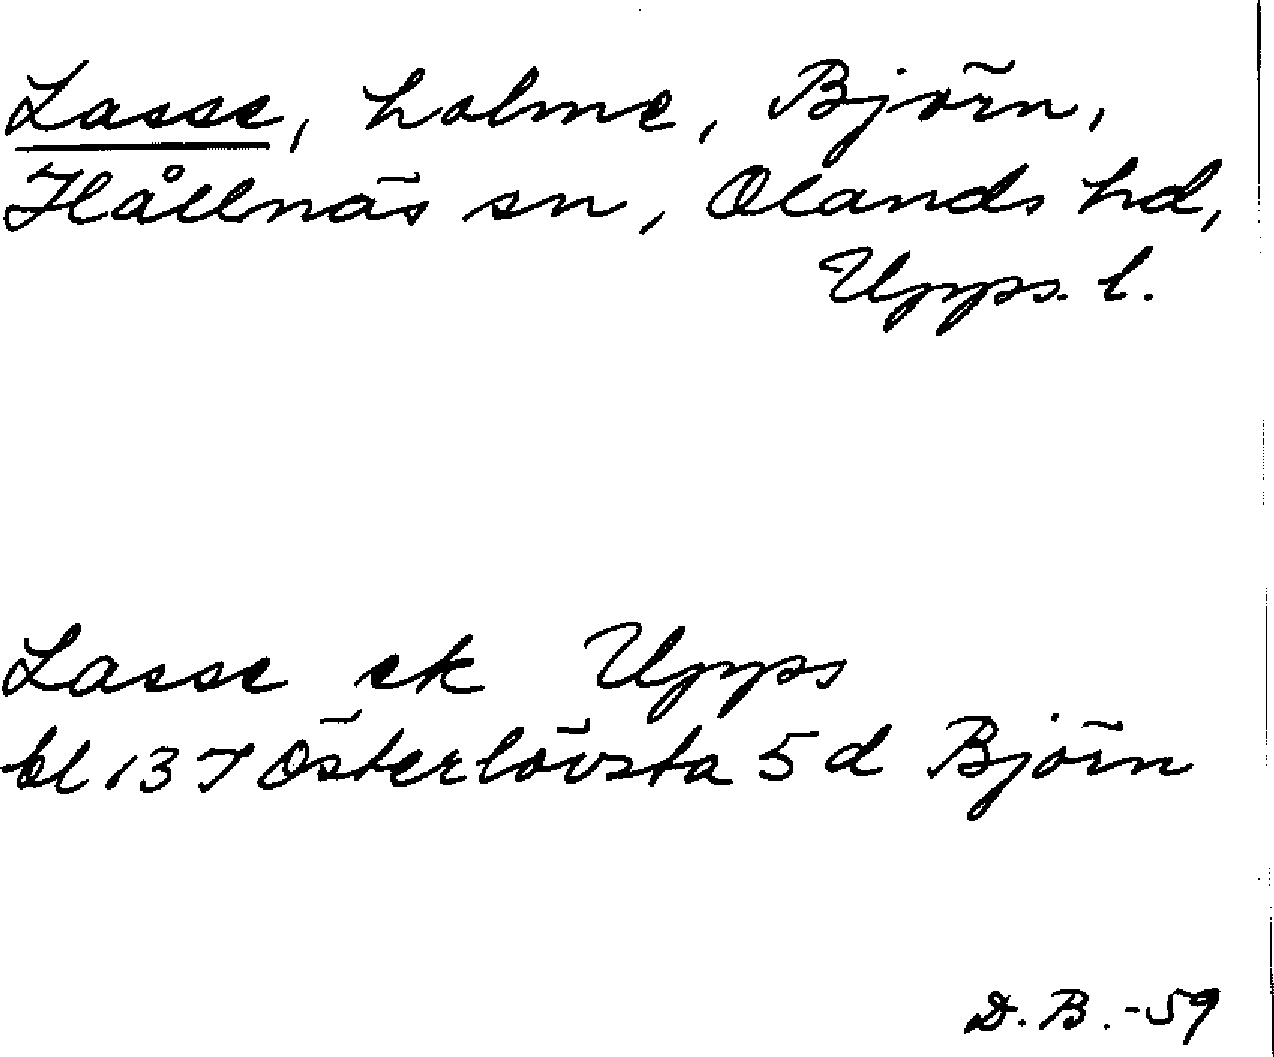 Lasse, holme, Björn,
Hållnäs sn, Olands hd,
Upps. l.
Lasse ek Upps
bl 137 Österlövsta 5 d Björn
D. B. -59